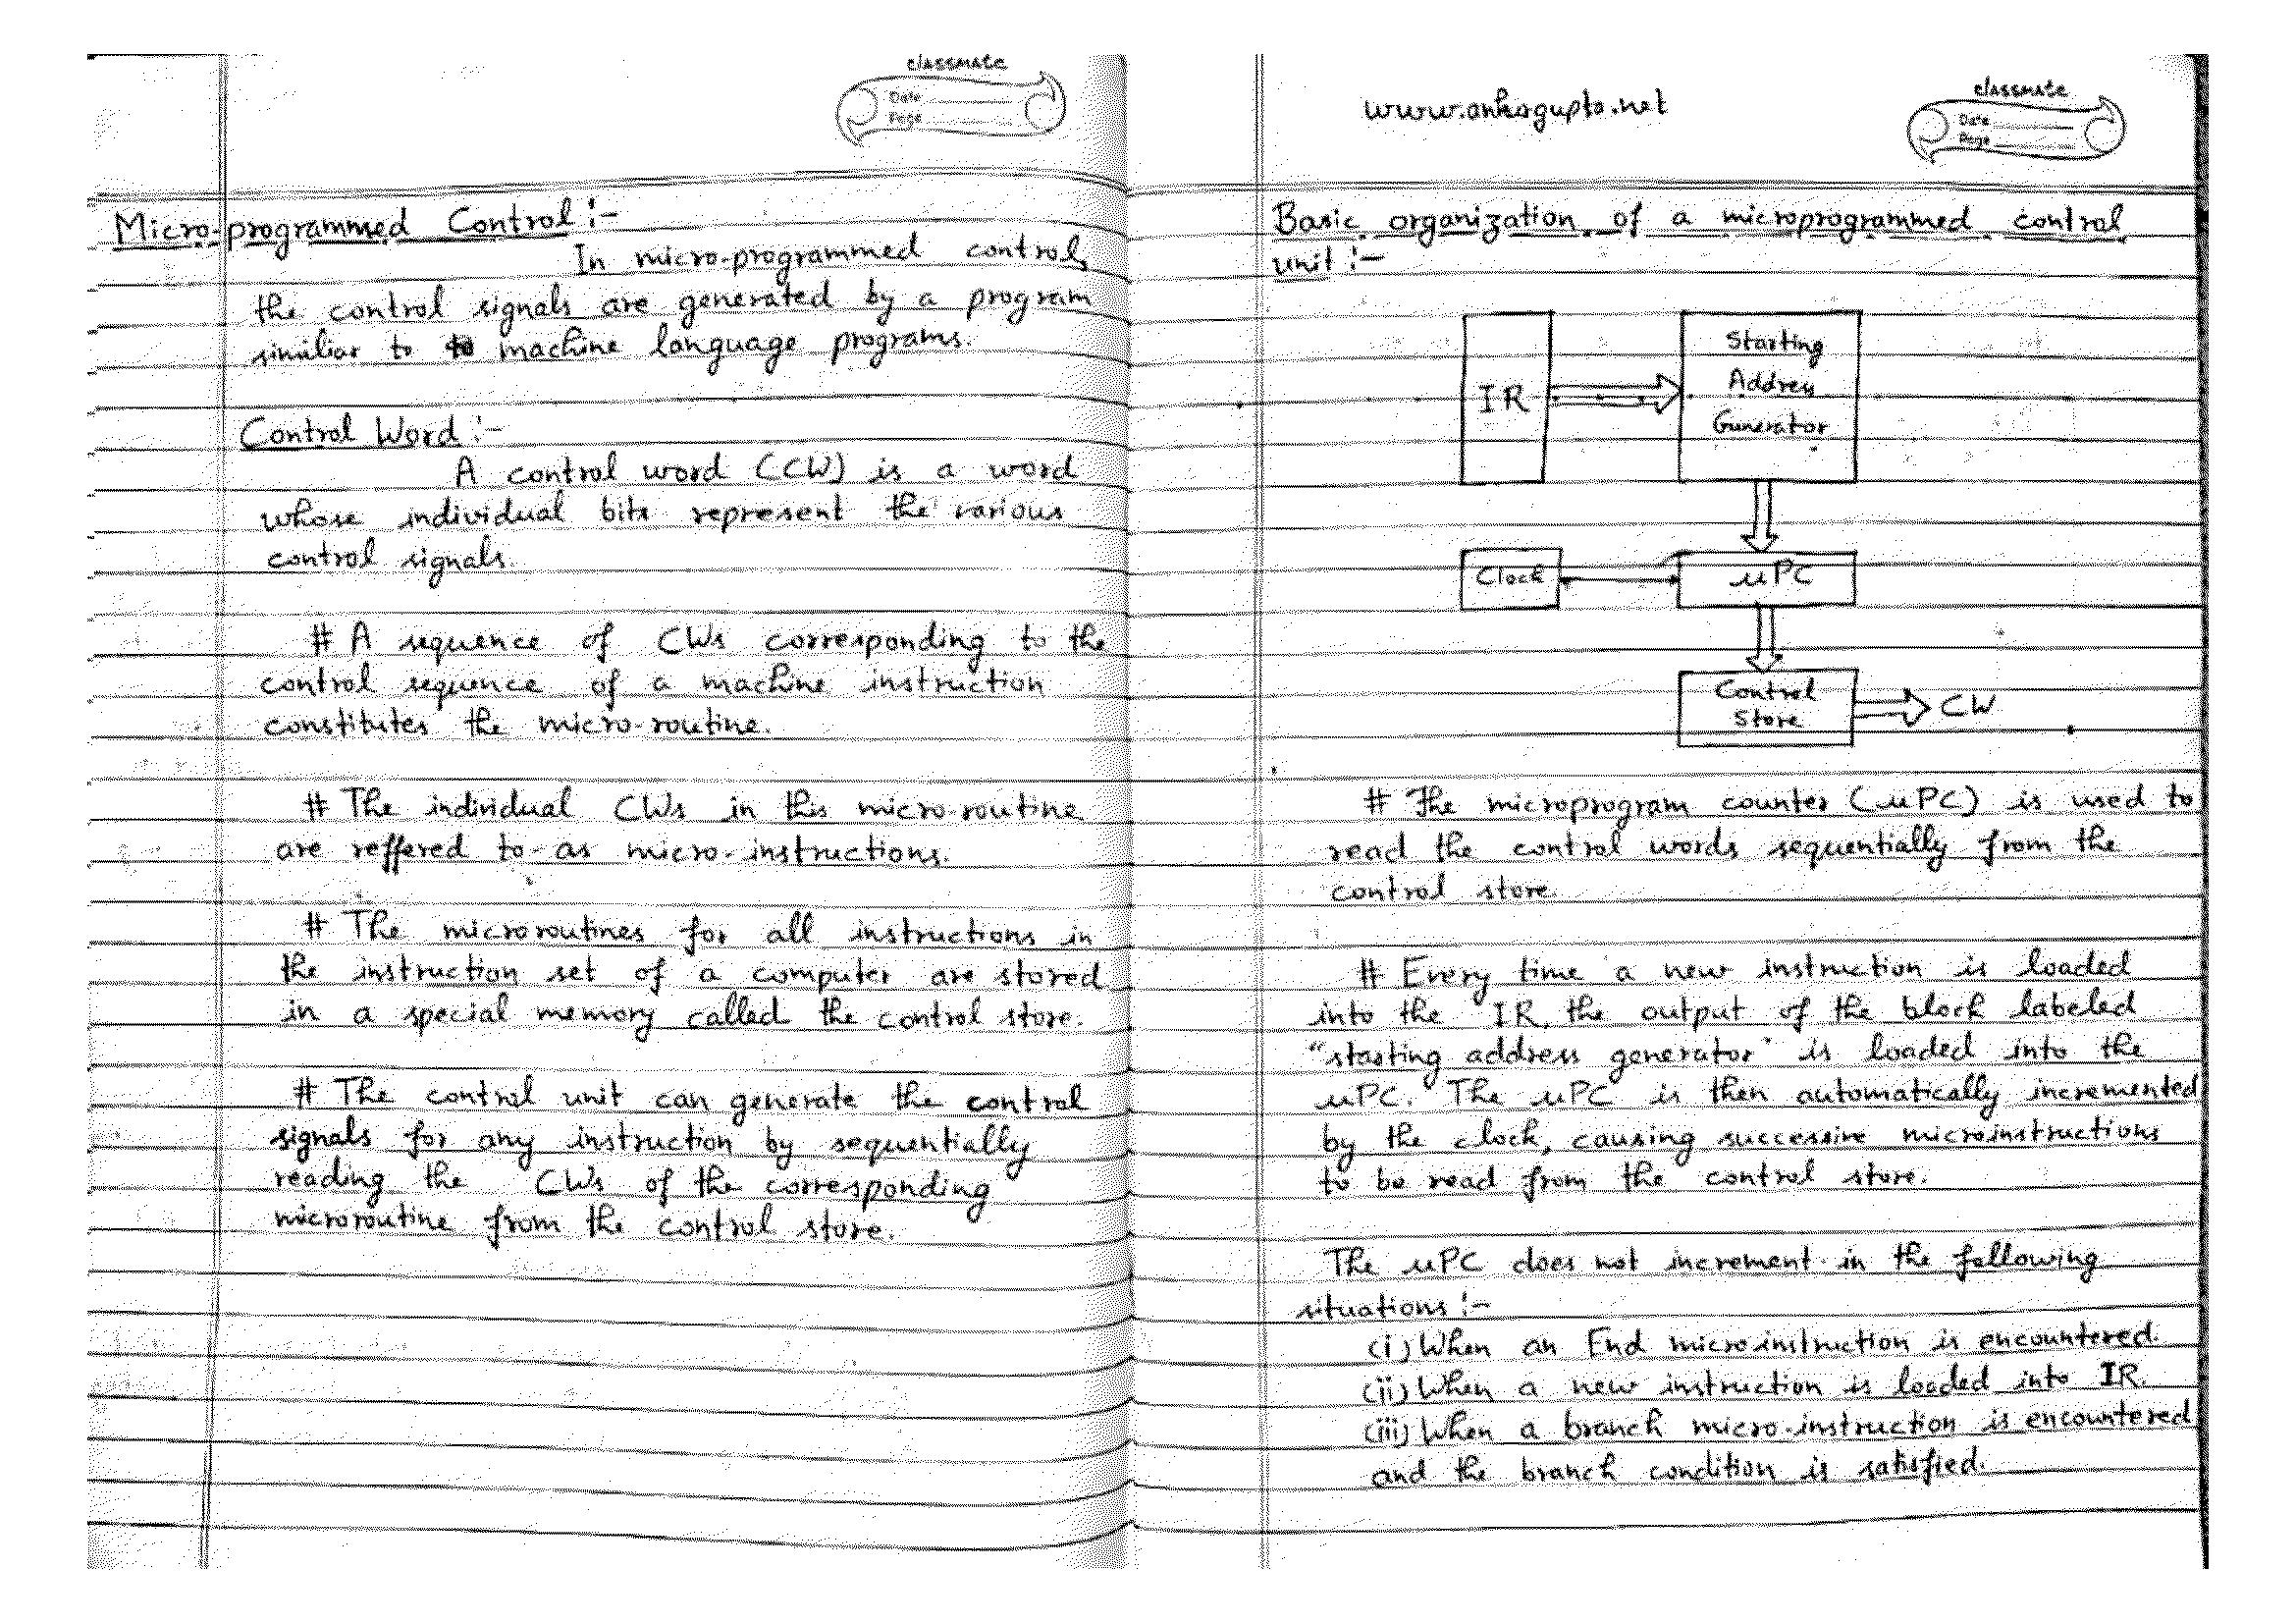 classmate
Date
Page
Micro-programmed Control :-
In micro-programmed control,
the control signals are generated by a program
similiar to machine language programs.
Control Word :-
A control word (CW) is a word
whose individual bits represent the various
control signals.
# A sequence of CWs corresponding to the
control sequence of a machine instruction
constitutes the micro-routine.
# The individual CWs in this micro-routine
are reffered to as micro-instructions.
# The microroutines for all instructions in
the instruction set of a computer are stored
in a special memory called the control store.
# The control unit can generate the control
signals for any instruction by sequentially
reading the CWs of the corresponding
microroutine from the control store.
classmate
Date
Page
Basic organization of a microprogrammed control
unit :-
IR
Starting
Address
Generator
Clock
μPC
Control
Store
CW
# The microprogram counter (μPC) is used to
read the control words sequentially from the
control store.
# Every time a new instruction is loaded
into the IR, the output of the block labeled
"starting address generator" is loaded into the
μPC. The μPC is then automatically incremented
by the clock, causing successive microinstructions
to be read from the control store.
The μPC does not increment in the following
situations :-
(i) When an End microinstruction is encountered.
(ii) When a new instruction is loaded into IR.
(iii) When a branch micro-instruction is encountered
and the branch condition is satisfied.